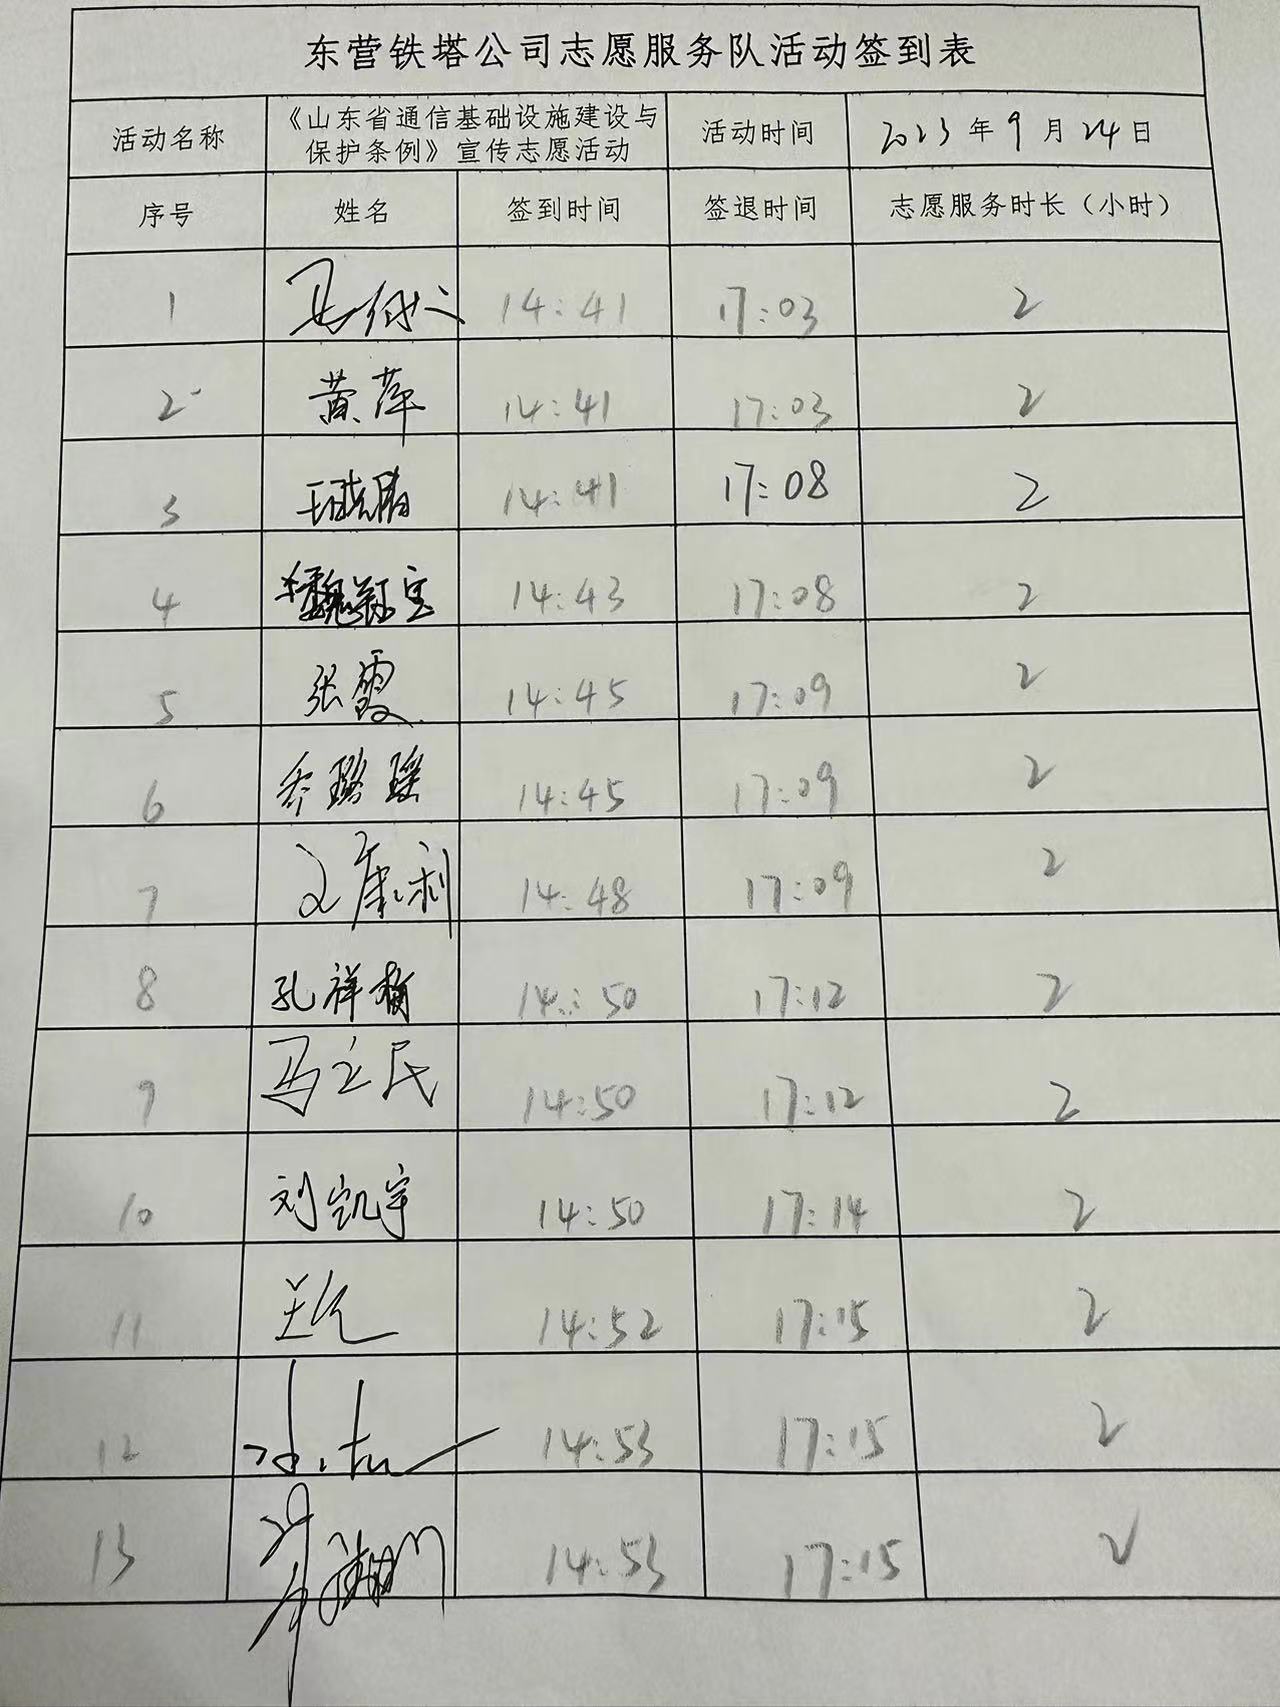 东营铁塔公司志愿服务队活动签到表
活动名称 《山东省通信基础设施建设与保护条例》宣传志愿活动 活动时间 2023年9月24日
序号 姓名 签到时间 签退时间 志愿服务时长（小时）
1 14:41 17:03 2
2 黄萍 14:41 17:03 2
3 14:41 17:08 2
4 14:43 17:08 2
5 张霞 14:45 17:09 2
6 乔璐瑶 14:45 17:09 2
7 14:48 17:09 2
8 孔祥楠 14:50 17:12 2
9 马立民 14:50 17:12 2
10 刘凯宇 14:50 17:14 2
11 14:52 17:15 2
12 14:53 17:15 2
13 14:53 17:15 2